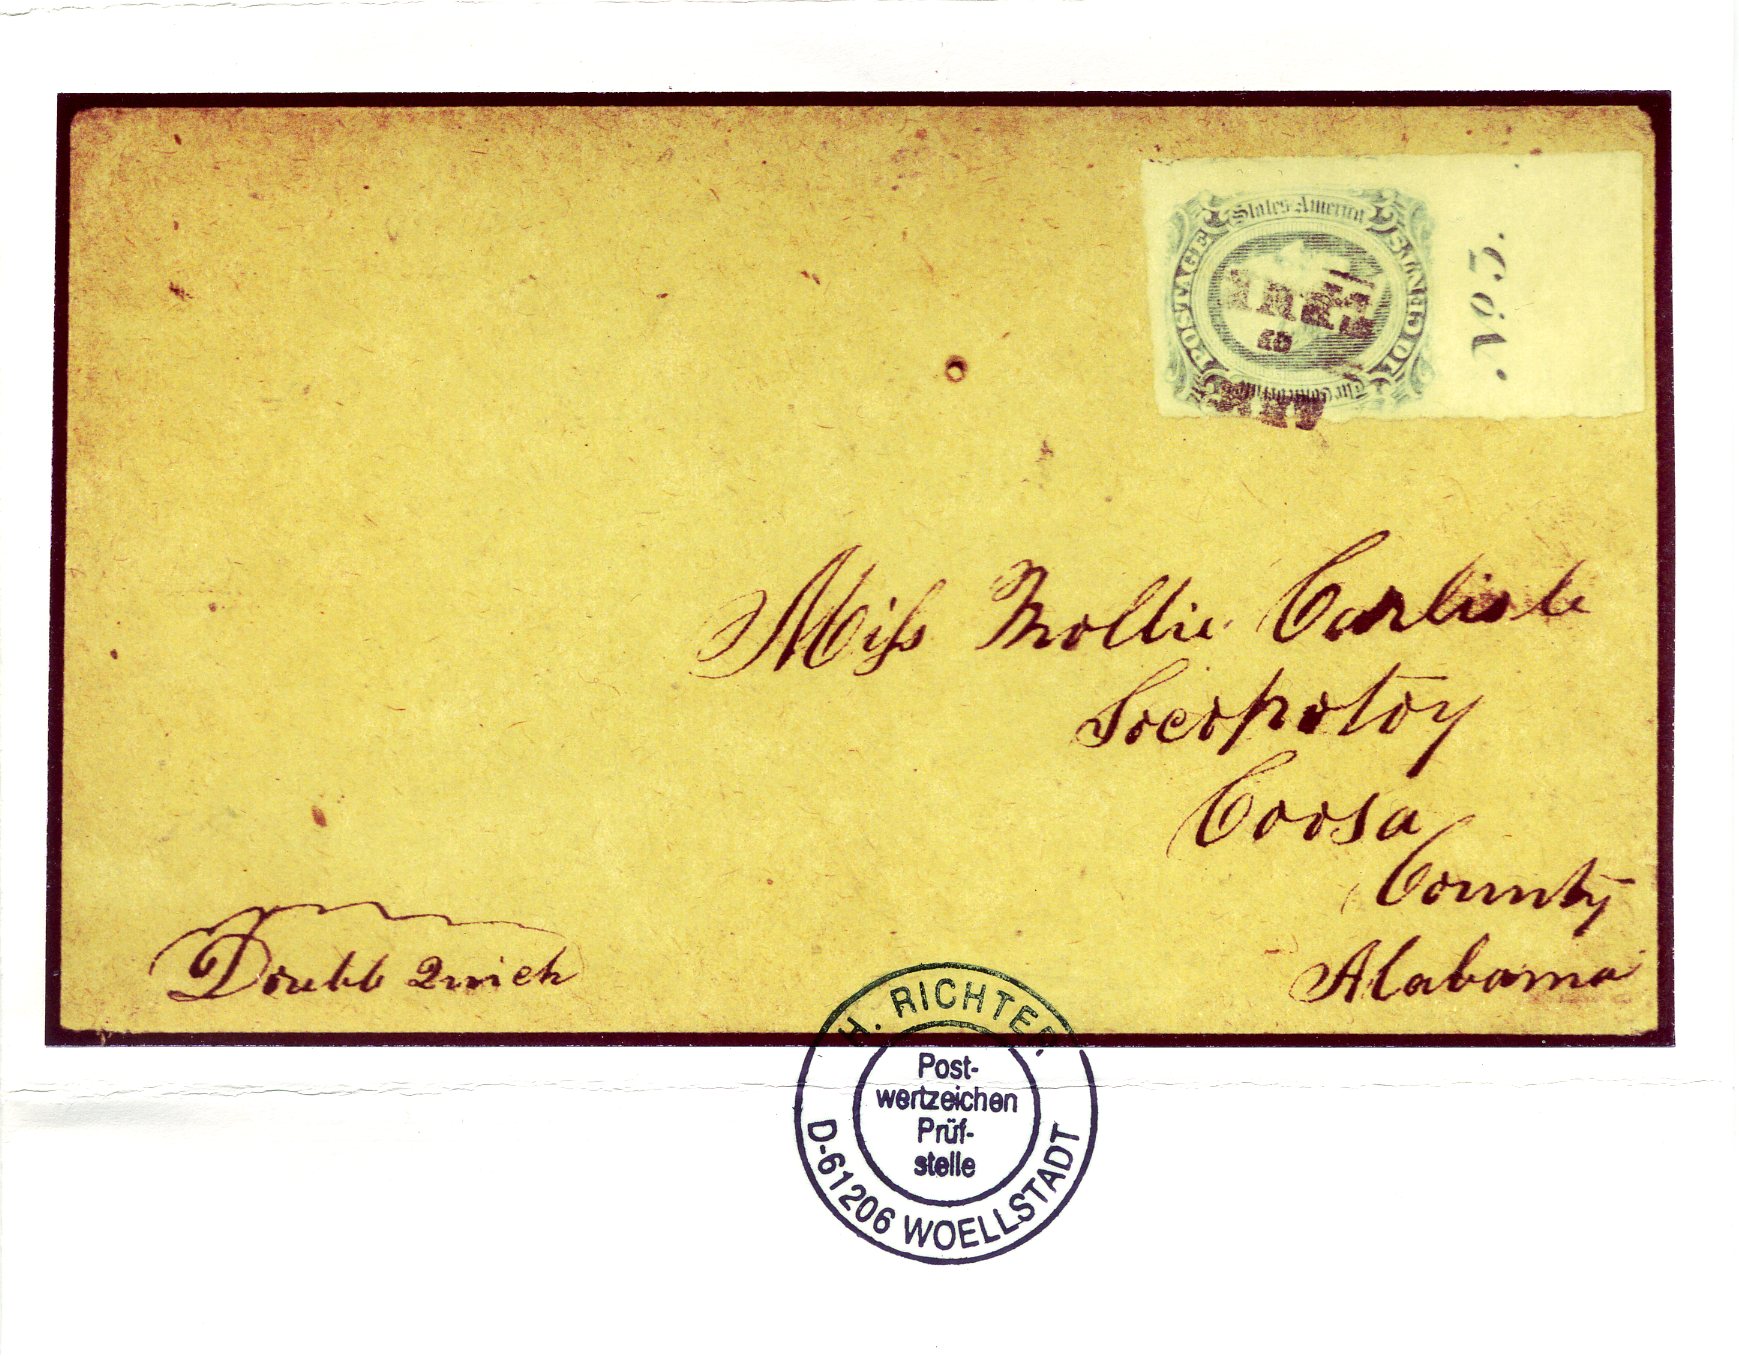 States America
POSTAGE
No 3.
Miss Mollie Carlisle
Socopotoy
Coosa
County
Alabama
Double Quick
H. RICHTER
Post-
wertzeichen
Prüf-
stelle
D-61206 WOELLSTADT